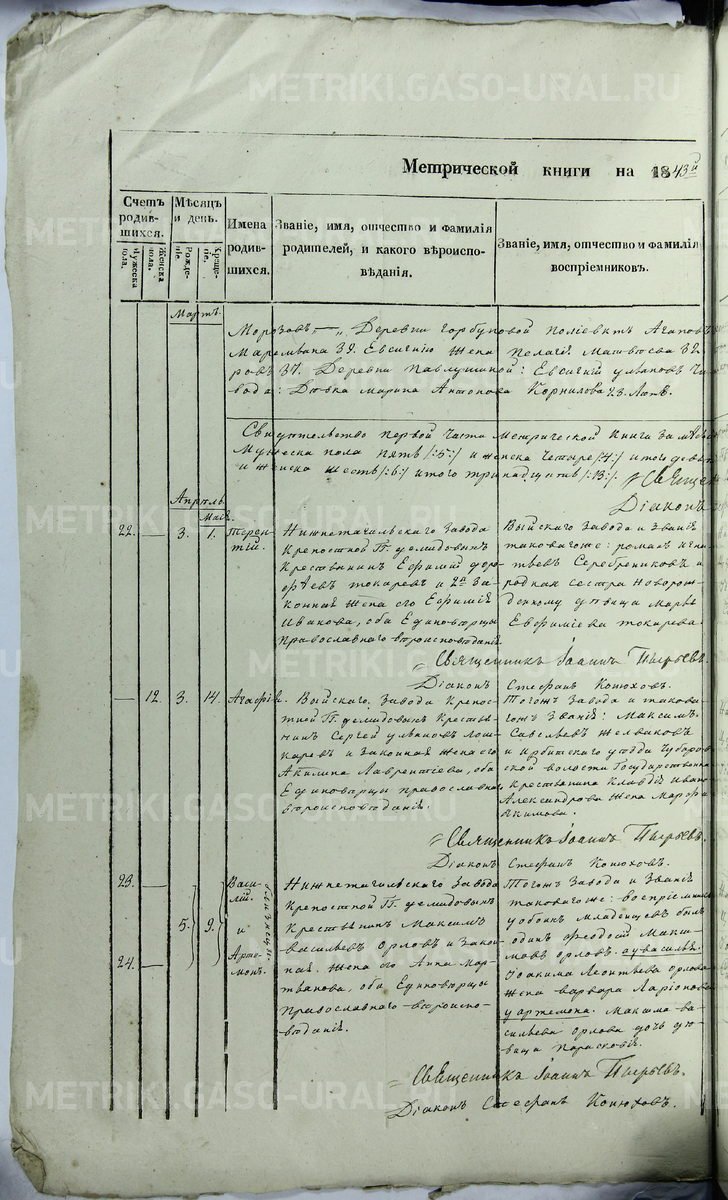 METRIKI.GASO-URAL.RU
Метрической книги на 1843й
Счетъ родившихся.
Мужеска пола.
Женска пола.
Мѣсяцъ и день.
Рожденіе.
Крещеніе.
Имена родившихся.
Званіе, имя, отчество и фамилія
родителей, и какого вѣроиспо-
вѣданія.
Званіе, имя, отчество и фамилія
воспріемниковъ.
Мартъ.
Морозовъ — „ Деревни Горбуновой Поліевктъ Агаповъ
39. Евсигнію жена Пелагія Матвѣева 32.
ровъ 37. Деревни Павлушиной: Евсигній Ульяновъ
вода: Дѣвка Марина Антонова Корнилова 23. Лѣтъ.
Свидѣтельство первой части метрической книги за
Мужеска пола пять /:5:/ и женска четыре /:4:/ итого
и женска шесть /:6:/ итого тринадцать /:13:/.
Священ
Діаконъ
Апрѣль
Маія.
22. — 3. 1.
Терен-
тій.
Нижнетагильскаго Завода
Крепостной Г. Демидовыхъ
Крестьянинъ Ефимій
токаревъ и 2я За-
конная жена его Ефимія
Иванова, оба Единовѣрцы
Православнаго вѣроисповѣданія.
Выйскаго завода и званія
таковагоже: романъ игна
тьевъ Серебренниковъ и
родная сестра новорож-
денному дѣвица Марья
Евфиміева токарева.
Священникъ Іоаннъ Пырьевъ.
Діаконъ Стефанъ Конюховъ.
— 12. 3. 14. Агафія.
Выйскаго Завода Крепос-
тной Г. Демидовыхъ Крестья-
нинъ Сергей Ульяновъ Лош-
каревъ и законная жена его
Акилина Лаврентіева, оба
Единовѣрцы православнаго
вѣроисповѣданія.
Тогожъ Завода и такова-
гожъ Званія: Максимъ
Савельевъ Желваковъ
и Ирбитскаго уѣзда
ской волости Государственна
крестьянина Клавдія
Александрова жена Марфа
Якимова.
Священникъ Іоаннъ Пырьевъ.
Діаконъ Стефанъ Конюховъ.
23. —
24. —
5. 9.
Васи-
лій.
и
Арте-
монъ.
близнецы.
Нижнетагильскаго Завода
Крепостной Г. Демидовыхъ
Крестьянинъ Максимъ
Васильевъ Орловъ и закон-
ная жена его Анна Мар-
тьянова, оба Единовѣрцы
Православнаго вѣроиспо-
вѣданія.
Тогожъ Завода и Званія
таковагоже: воспріемник
у обоихъ младенцевъ былъ
одинъ Феодосій Макси-
мовъ Орловъ. а у Василья
Іоакима Леонтьева Орлова
жена Варвара Ларіонова
у Артемона. Максима Ва-
сильева Орлова дочь дѣ-
вица Парасковія.
Священникъ Іоаннъ Пырьевъ.
Діаконъ Стефанъ Конюховъ.